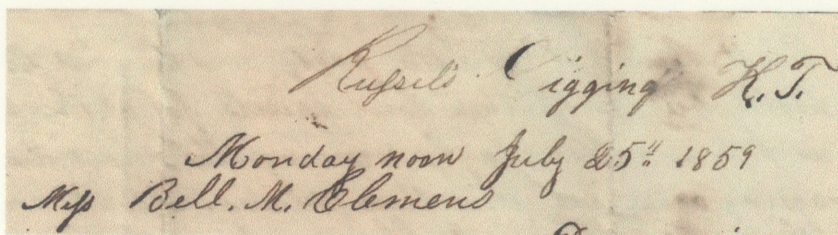 Russels Digging K.T.
Monday noon July 25th 1859
Miss Bell. M. Clemens